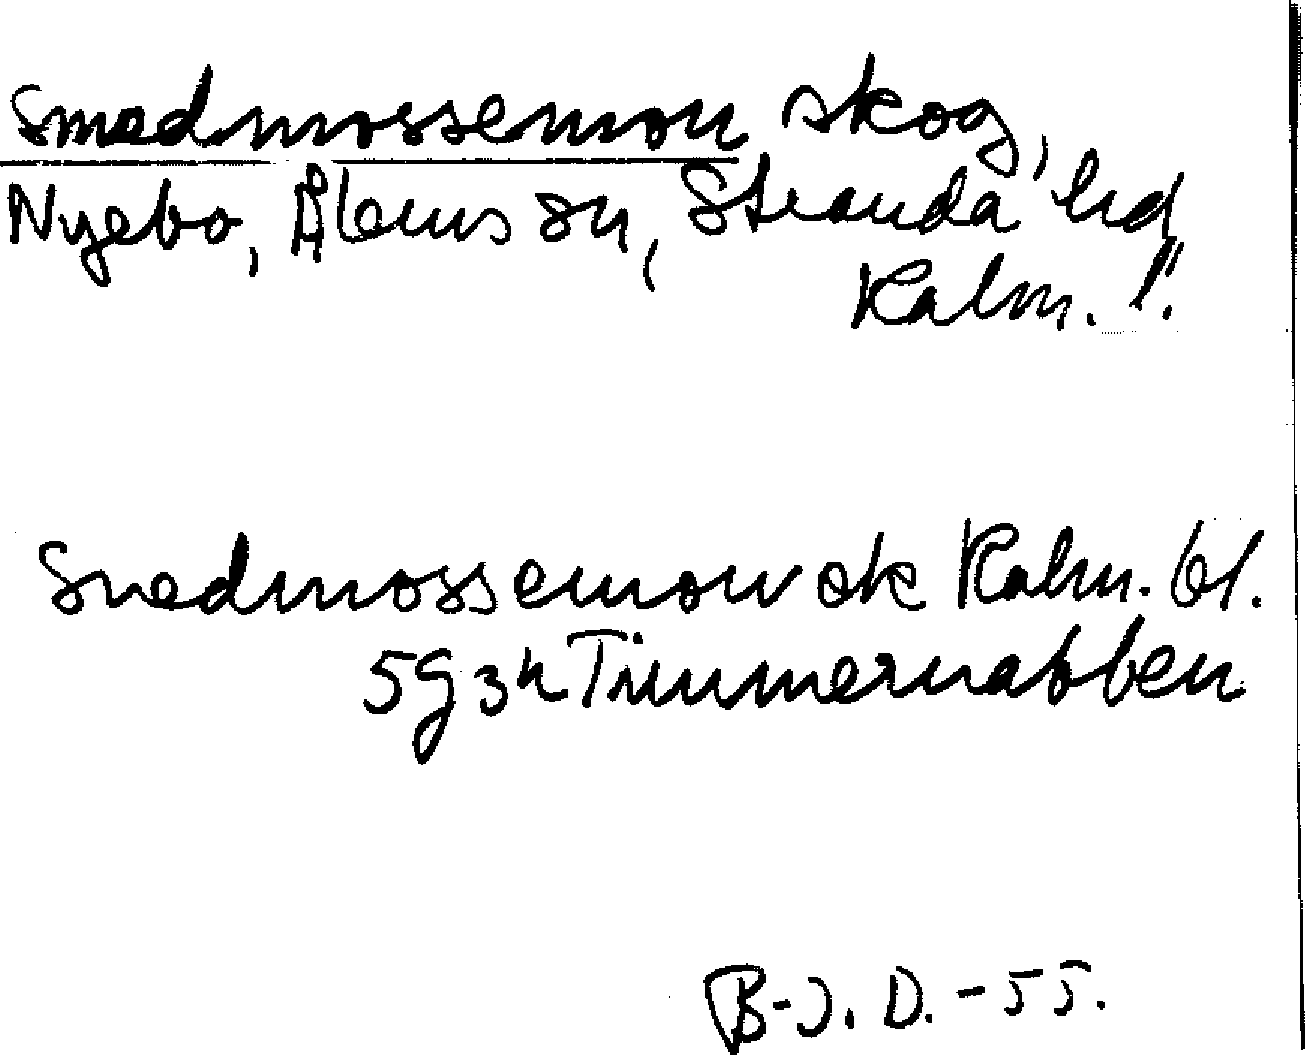 Smedmossemon skog,
Nyebo, Ålems sn, Stranda hd
Kalm. l.
Smedmossemon ek Kalm. bl.
5g3h Timmernabben
B-J. D. -55.